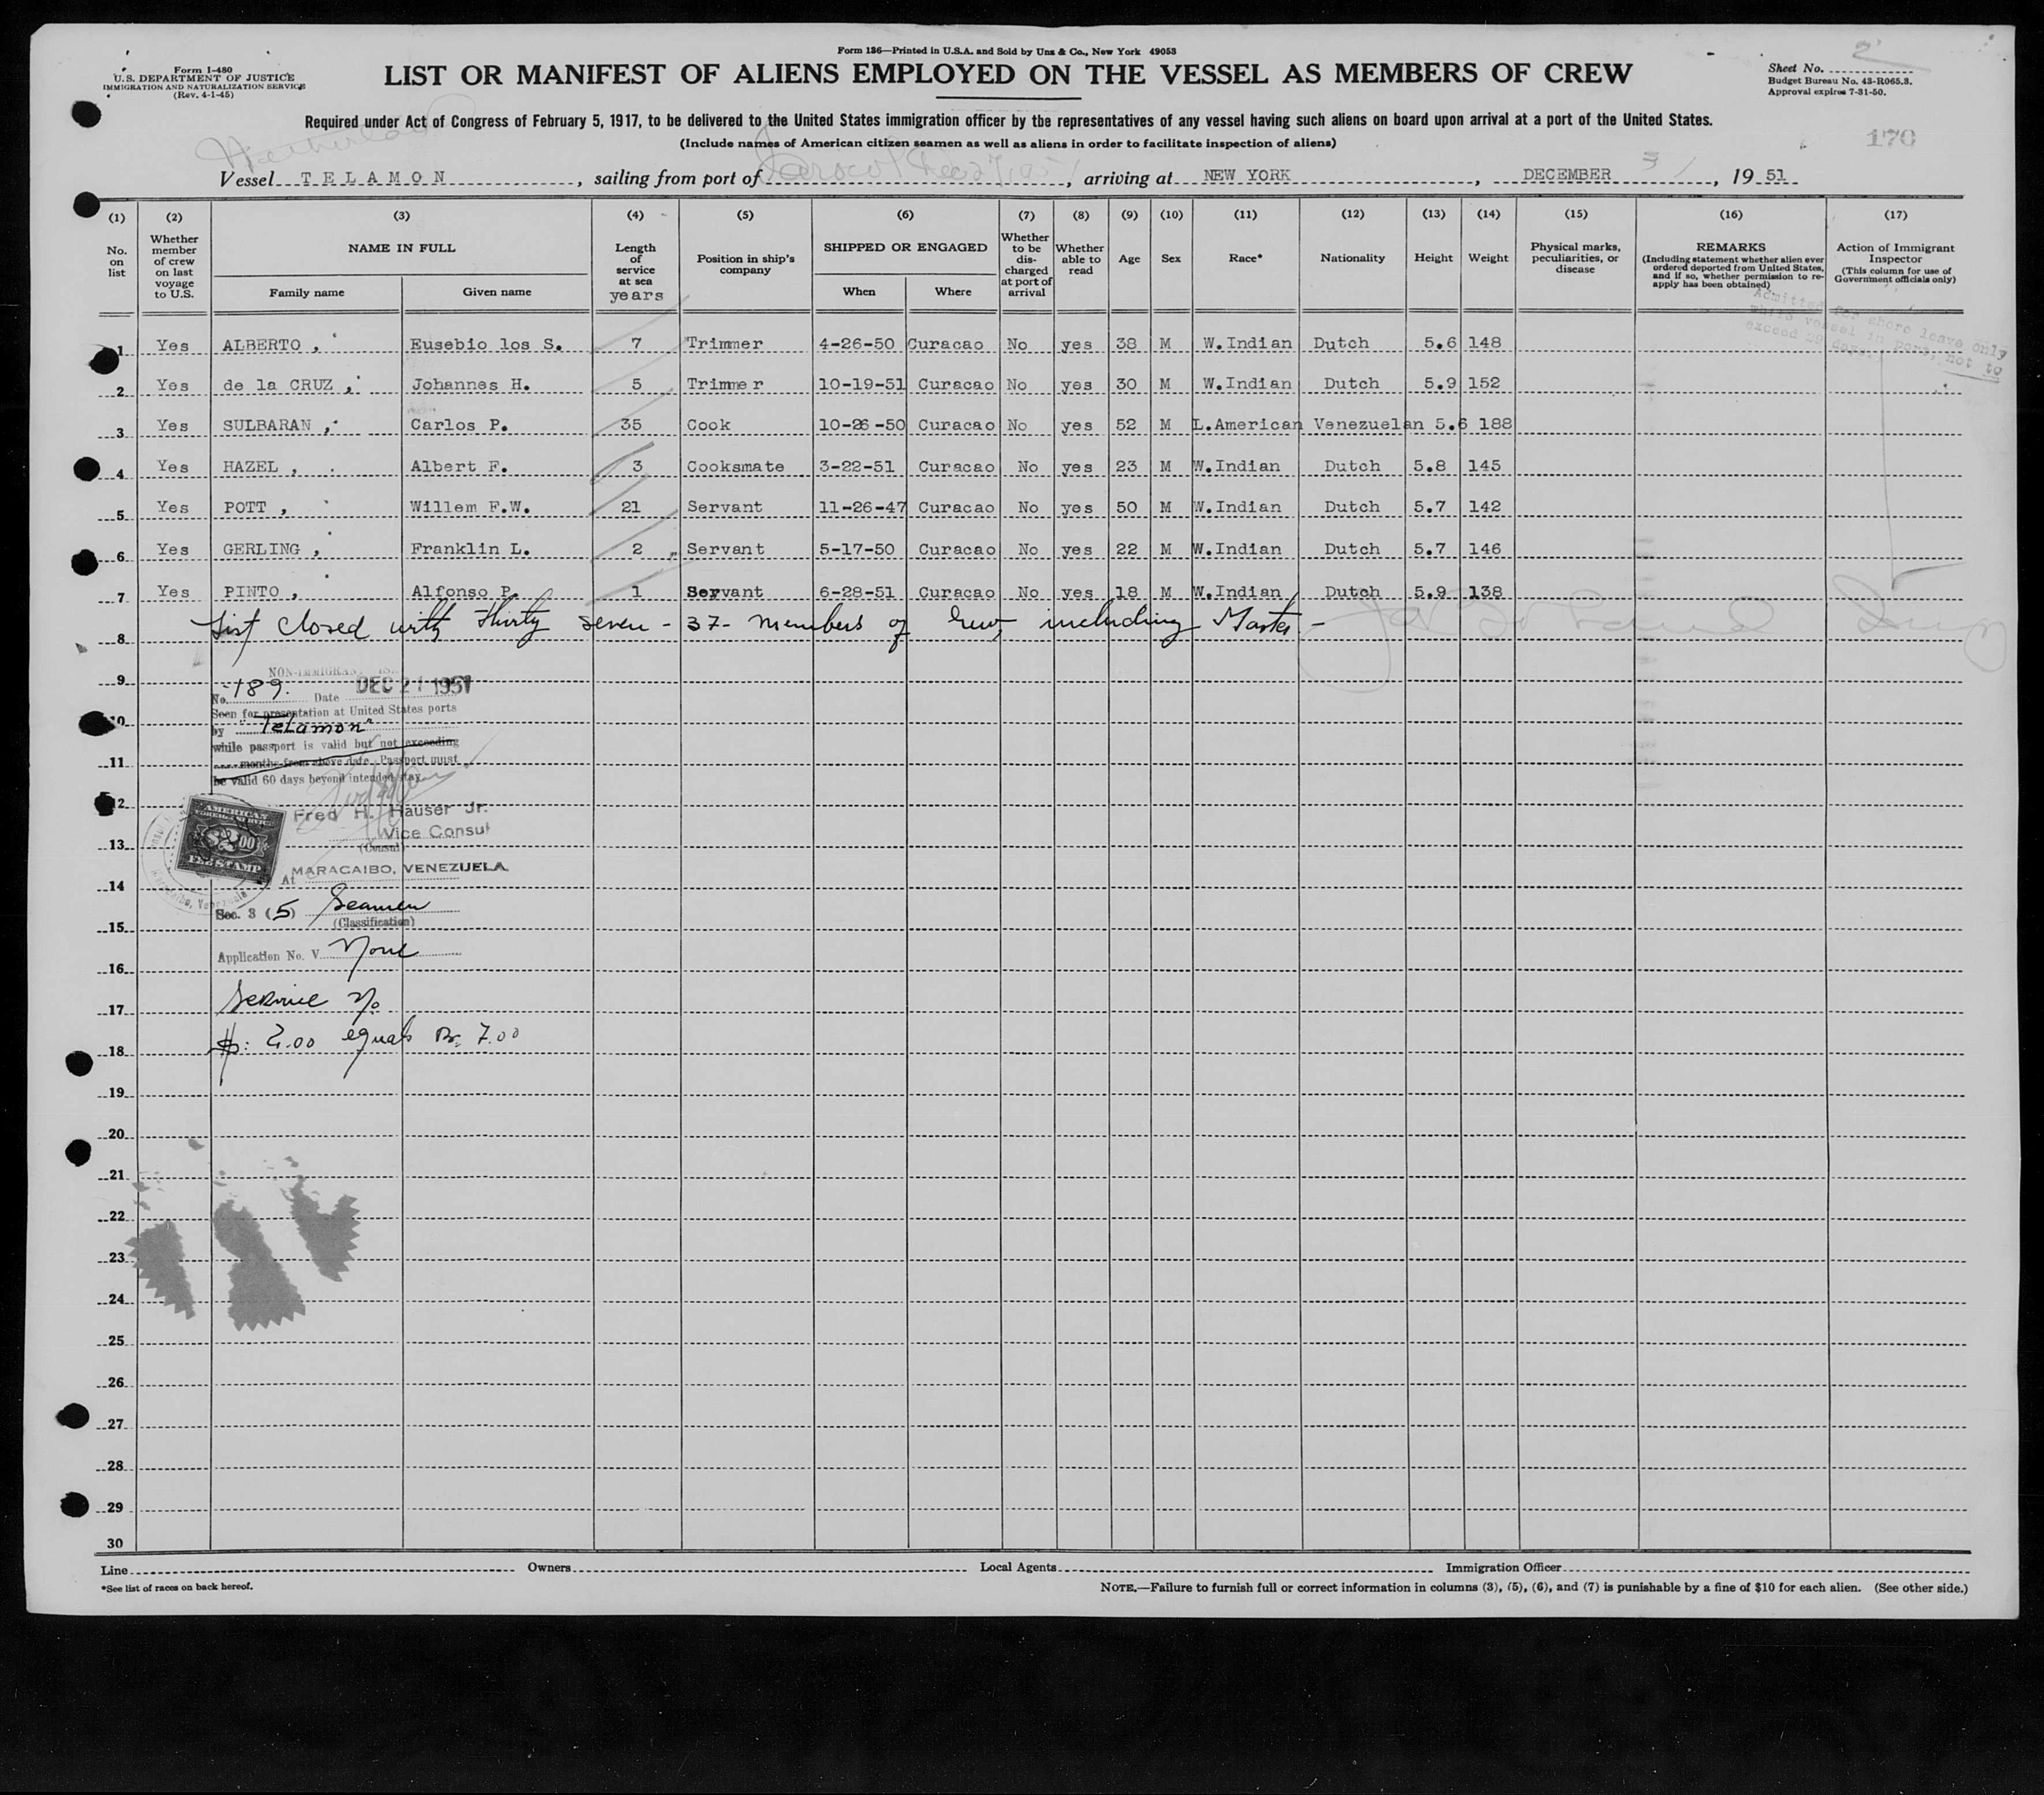 Form 136—Printed in U.S.A. and Sold by Unz & Co., New York 49053
Form I-480
U.S. DEPARTMENT OF JUSTICE
IMMIGRATION AND NATURALIZATION SERVICE
(Rev. 4-1-45)
LIST OR MANIFEST OF ALIENS EMPLOYED ON THE VESSEL AS MEMBERS OF CREW
Sheet No. 2
Budget Bureau No. 43-R065.3.
Approval expires 7-31-50.
Required under Act of Congress of February 5, 1917, to be delivered to the United States immigration officer by the representatives of any vessel having such aliens on board upon arrival at a port of the United States.
(Include names of American citizen seamen as well as aliens in order to facilitate inspection of aliens)
176
Vessel TELAMON, sailing from port of, arriving at NEW YORK, DECEMBER 31, 19 51
(1) (2) (3) (4) (5) (6) (7) (8) (9) (10) (11) (12) (13) (14) (15) (16) (17)
No. on list
Whether member of crew on last voyage to U.S.
NAME IN FULL
Family name Given name
Length of service at sea years
Position in ship's company
SHIPPED OR ENGAGED
When Where
Whether to be discharged at port of arrival
Whether able to read
Age Sex Race* Nationality Height Weight
Physical marks, peculiarities, or disease
REMARKS
(Including statement whether alien ever ordered deported from United States, and if so, whether permission to reapply has been obtained)
Action of Immigrant Inspector
(This column for use of Government officials only)
Admitted for shore leave only
while vessel in port, not to
exceed 29 days.
1 Yes ALBERTO, Eusebio los S. 7 Trimmer 4-26-50 Curacao No yes 38 M W.Indian Dutch 5.6 148
2 Yes de la CRUZ, Johannes H. 5 Trimmer 10-19-51 Curacao No yes 30 M W.Indian Dutch 5.9 152
3 Yes SULBARAN, Carlos P. 35 Cook 10-26-50 Curacao No yes 52 M L.American Venezuelan 5.6 188
4 Yes HAZEL, Albert F. 3 Cooksmate 3-22-51 Curacao No yes 23 M W.Indian Dutch 5.8 145
5 Yes POTT, Willem F.W. 21 Servant 11-26-47 Curacao No yes 50 M W.Indian Dutch 5.7 142
6 Yes GERLING, Franklin L. 2 Servant 5-17-50 Curacao No yes 22 M W.Indian Dutch 5.7 146
7 Yes PINTO, Alfonso P. 1 Servant 6-28-51 Curacao No yes 18 M W.Indian Dutch 5.9 138
List closed with thirty seven - 37 - members of crew, including Master -
8
9
NON-IMMIGRANT
No. 189. Date DEC 21 1951
Seen for presentation at United States ports
10
by "Telamon"
while passport is valid but not exceeding
11
months from above date. Passport must
be valid 60 days beyond intended stay
12
AMERICAN
FOREIGN SERVICE
$2.00
FEE STAMP
Fred H. Hauser Jr.
Vice Consul
13
(Consul)
At MARACAIBO, VENEZUELA
14
Sec. 3 (5) Seamen
15
(Classification)
Application No. V None
16
Service No
17
$: 2.00 equals Bs. 7.00
18
19
20
21
22
23
24
25
26
27
28
29
30
Line Owners Local Agents Immigration Officer
*See list of races on back hereof.
NOTE.—Failure to furnish full or correct information in columns (3), (5), (6), and (7) is punishable by a fine of $10 for each alien. (See other side.)